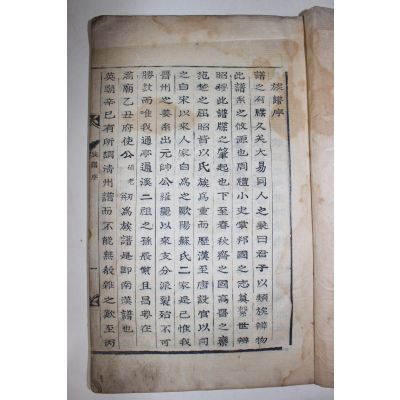 族譜序
譜之有牒久矣大易同人之象曰君子以類族辨物
此譜系之攸源也周禮小史掌邦國之志奠繫世辨
昭穆此譜牒之肇起也下至春秋齊之國高晉之欒
范楚之屈昭皆以氏族爲重而歷漢至唐設官以司
之自宋以來人家自爲之歐陽蘇氏二家是已惟我
晉州之姜系出元帥公羅麗以來支分派裂殆不可
勝數而惟我通亭通溪二祖之孫最繁且昌粤在
肅廟乙丑府使公碩老刱爲族譜是卽南漢譜也
英廟辛巳有所謂清州譜而不能無殽雜之歎至丙
族譜序
一